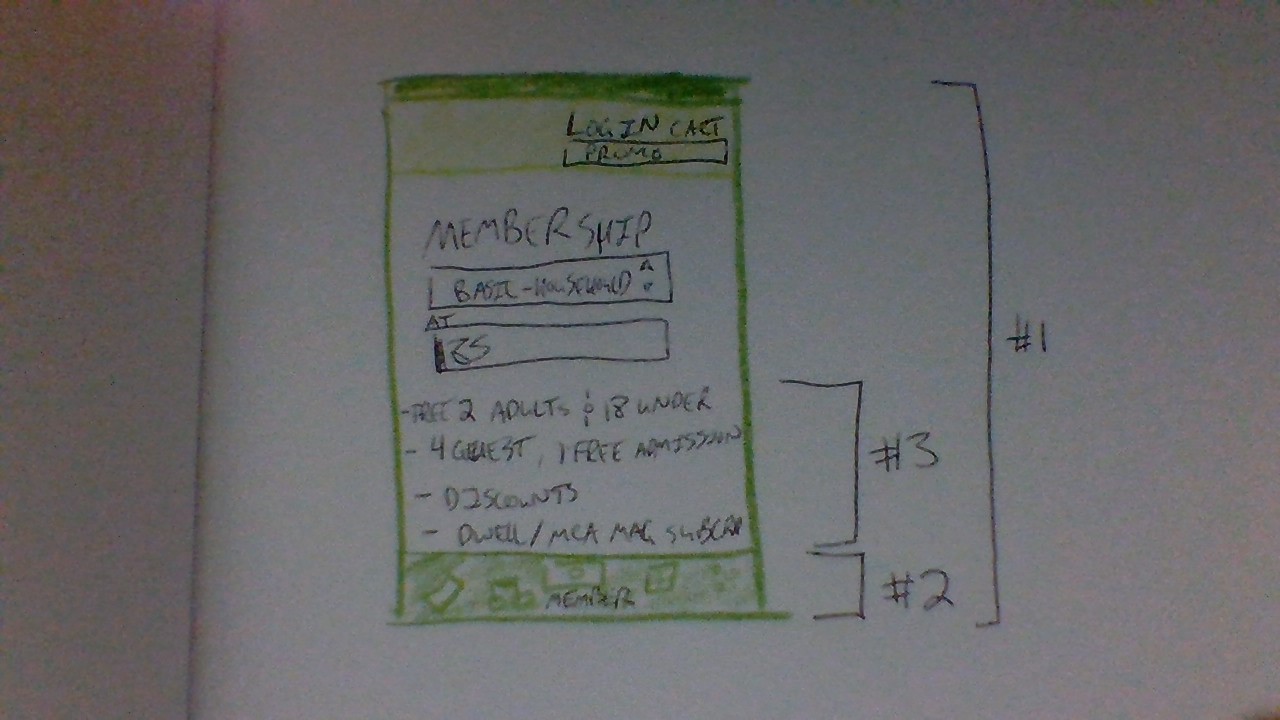 LOGIN CART
PROMO
MEMBERSHIP
BASIC-HOUSEHOLD
AT
- FREE 2 ADULTS & 18 UNDER
- 4 GUEST, 1 FREE ADMISSION
- DISCOUNTS
- DWELL/MCA MAG SUBCRP
MEMBER
#1
#3
#2